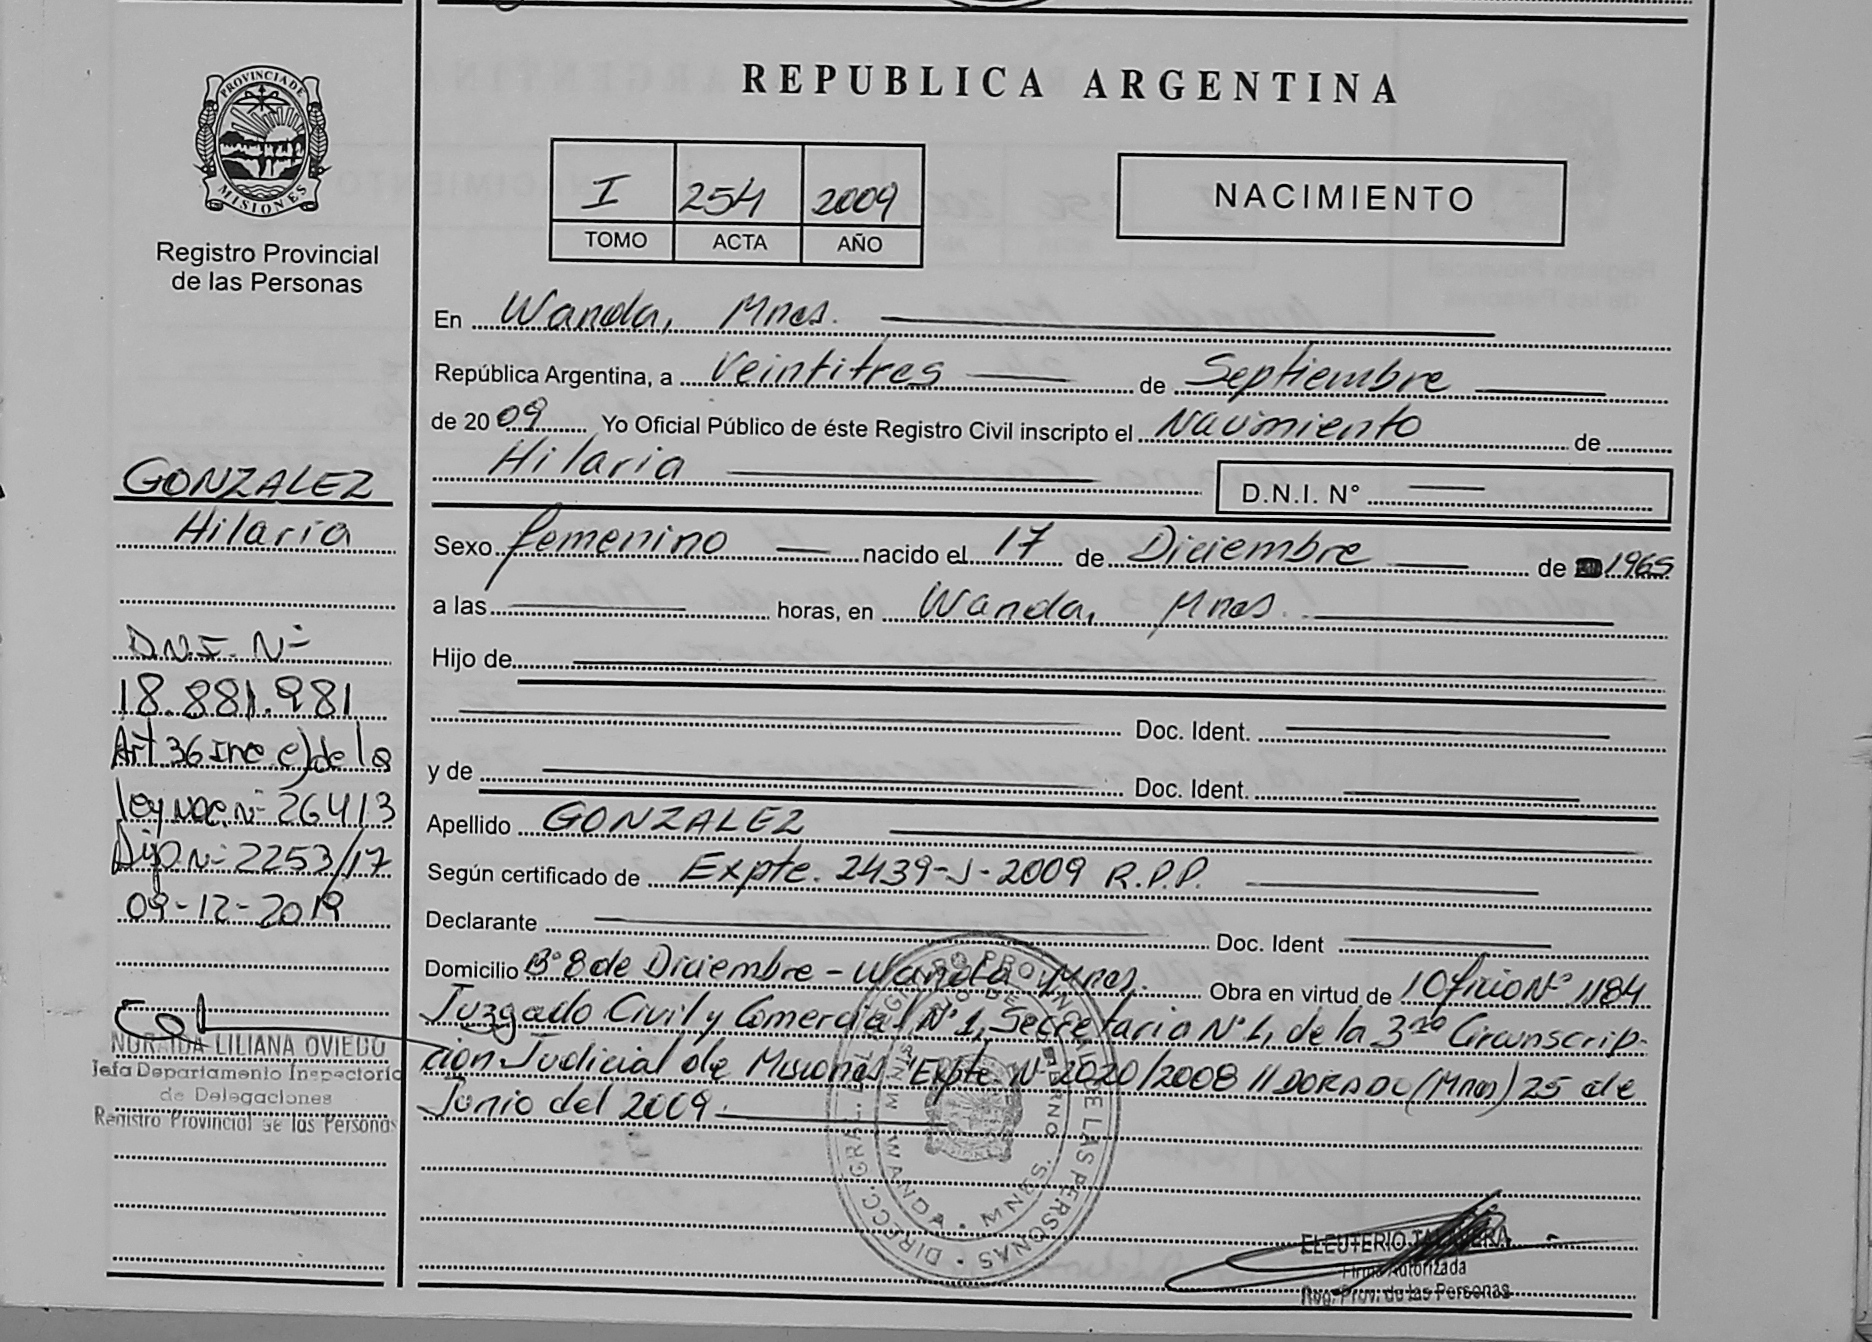 REPUBLICA ARGENTINA
PROVINCIA DE
MISIONES
Registro Provincial
de las Personas
I 254 2009
TOMO ACTA AÑO
NACIMIENTO
En Wanda, Mnes.
República Argentina, a Veintitres de Septiembre
de 2009 Yo Oficial Público de éste Registro Civil inscripto el Nacimiento de
Hilaria D.N.I. N°
Sexo femenino nacido el 17 de Diciembre de 1965
a las horas, en Wanda, Mnes.
Hijo de
Doc. Ident.
y de Doc. Ident.
Apellido GONZALEZ
Según certificado de Expte. 2439-J-2009 R.P.P.
Declarante Doc. Ident
Domicilio B° 8 de Diciembre - Wanda, Mnes. Obra en virtud de Oficio N° 1184
Juzgado Civil y Comercial N° 1, Secretaria N° 1, de la 3ra Circunscrip-
ción Judicial de Misiones "Expte. N° 2020/2008 // DORADO (Mnes) 25 de
Junio del 2009
GONZALEZ
Hilaria
D.N.I. N°
18.881.981
Art 36 Inc e) de la
ley Nac. N° 26413
Disp. N° 2253/17
09-12-2019
NORAIDA LILIANA OVIEDO
Jefa Departamento Inspectoria
de Delegaciones
Registro Provincial de las Personas
DIRECC. GRAL. DEL REGISTRO PROVINCIAL DE LAS PERSONAS
WANDA - MNES.
ELEUTERIO TALAVERA
Firma Autorizada
Reg. Prov. de las Personas